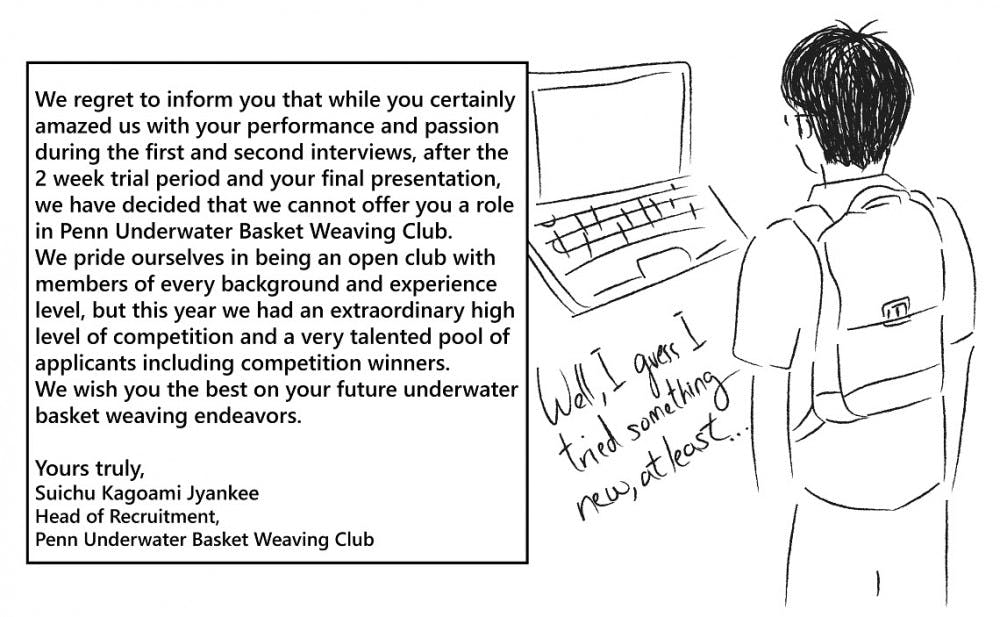 We regret to inform you that while you certainly
amazed us with your performance and passion
during the first and second interviews, after the
2 week trial period and your final presentation,
we have decided that we cannot offer you a role
in Penn Underwater Basket Weaving Club.
We pride ourselves in being an open club with
members of every background and experience
level, but this year we had an extraordinary high
level of competition and a very talented pool of
applicants including competition winners.
We wish you the best on your future underwater
basket weaving endeavors.
Yours truly,
Suichu Kagoami Jyankee
Head of Recruitment,
Penn Underwater Basket Weaving Club
Well, I guess I
tried something
new, at least...